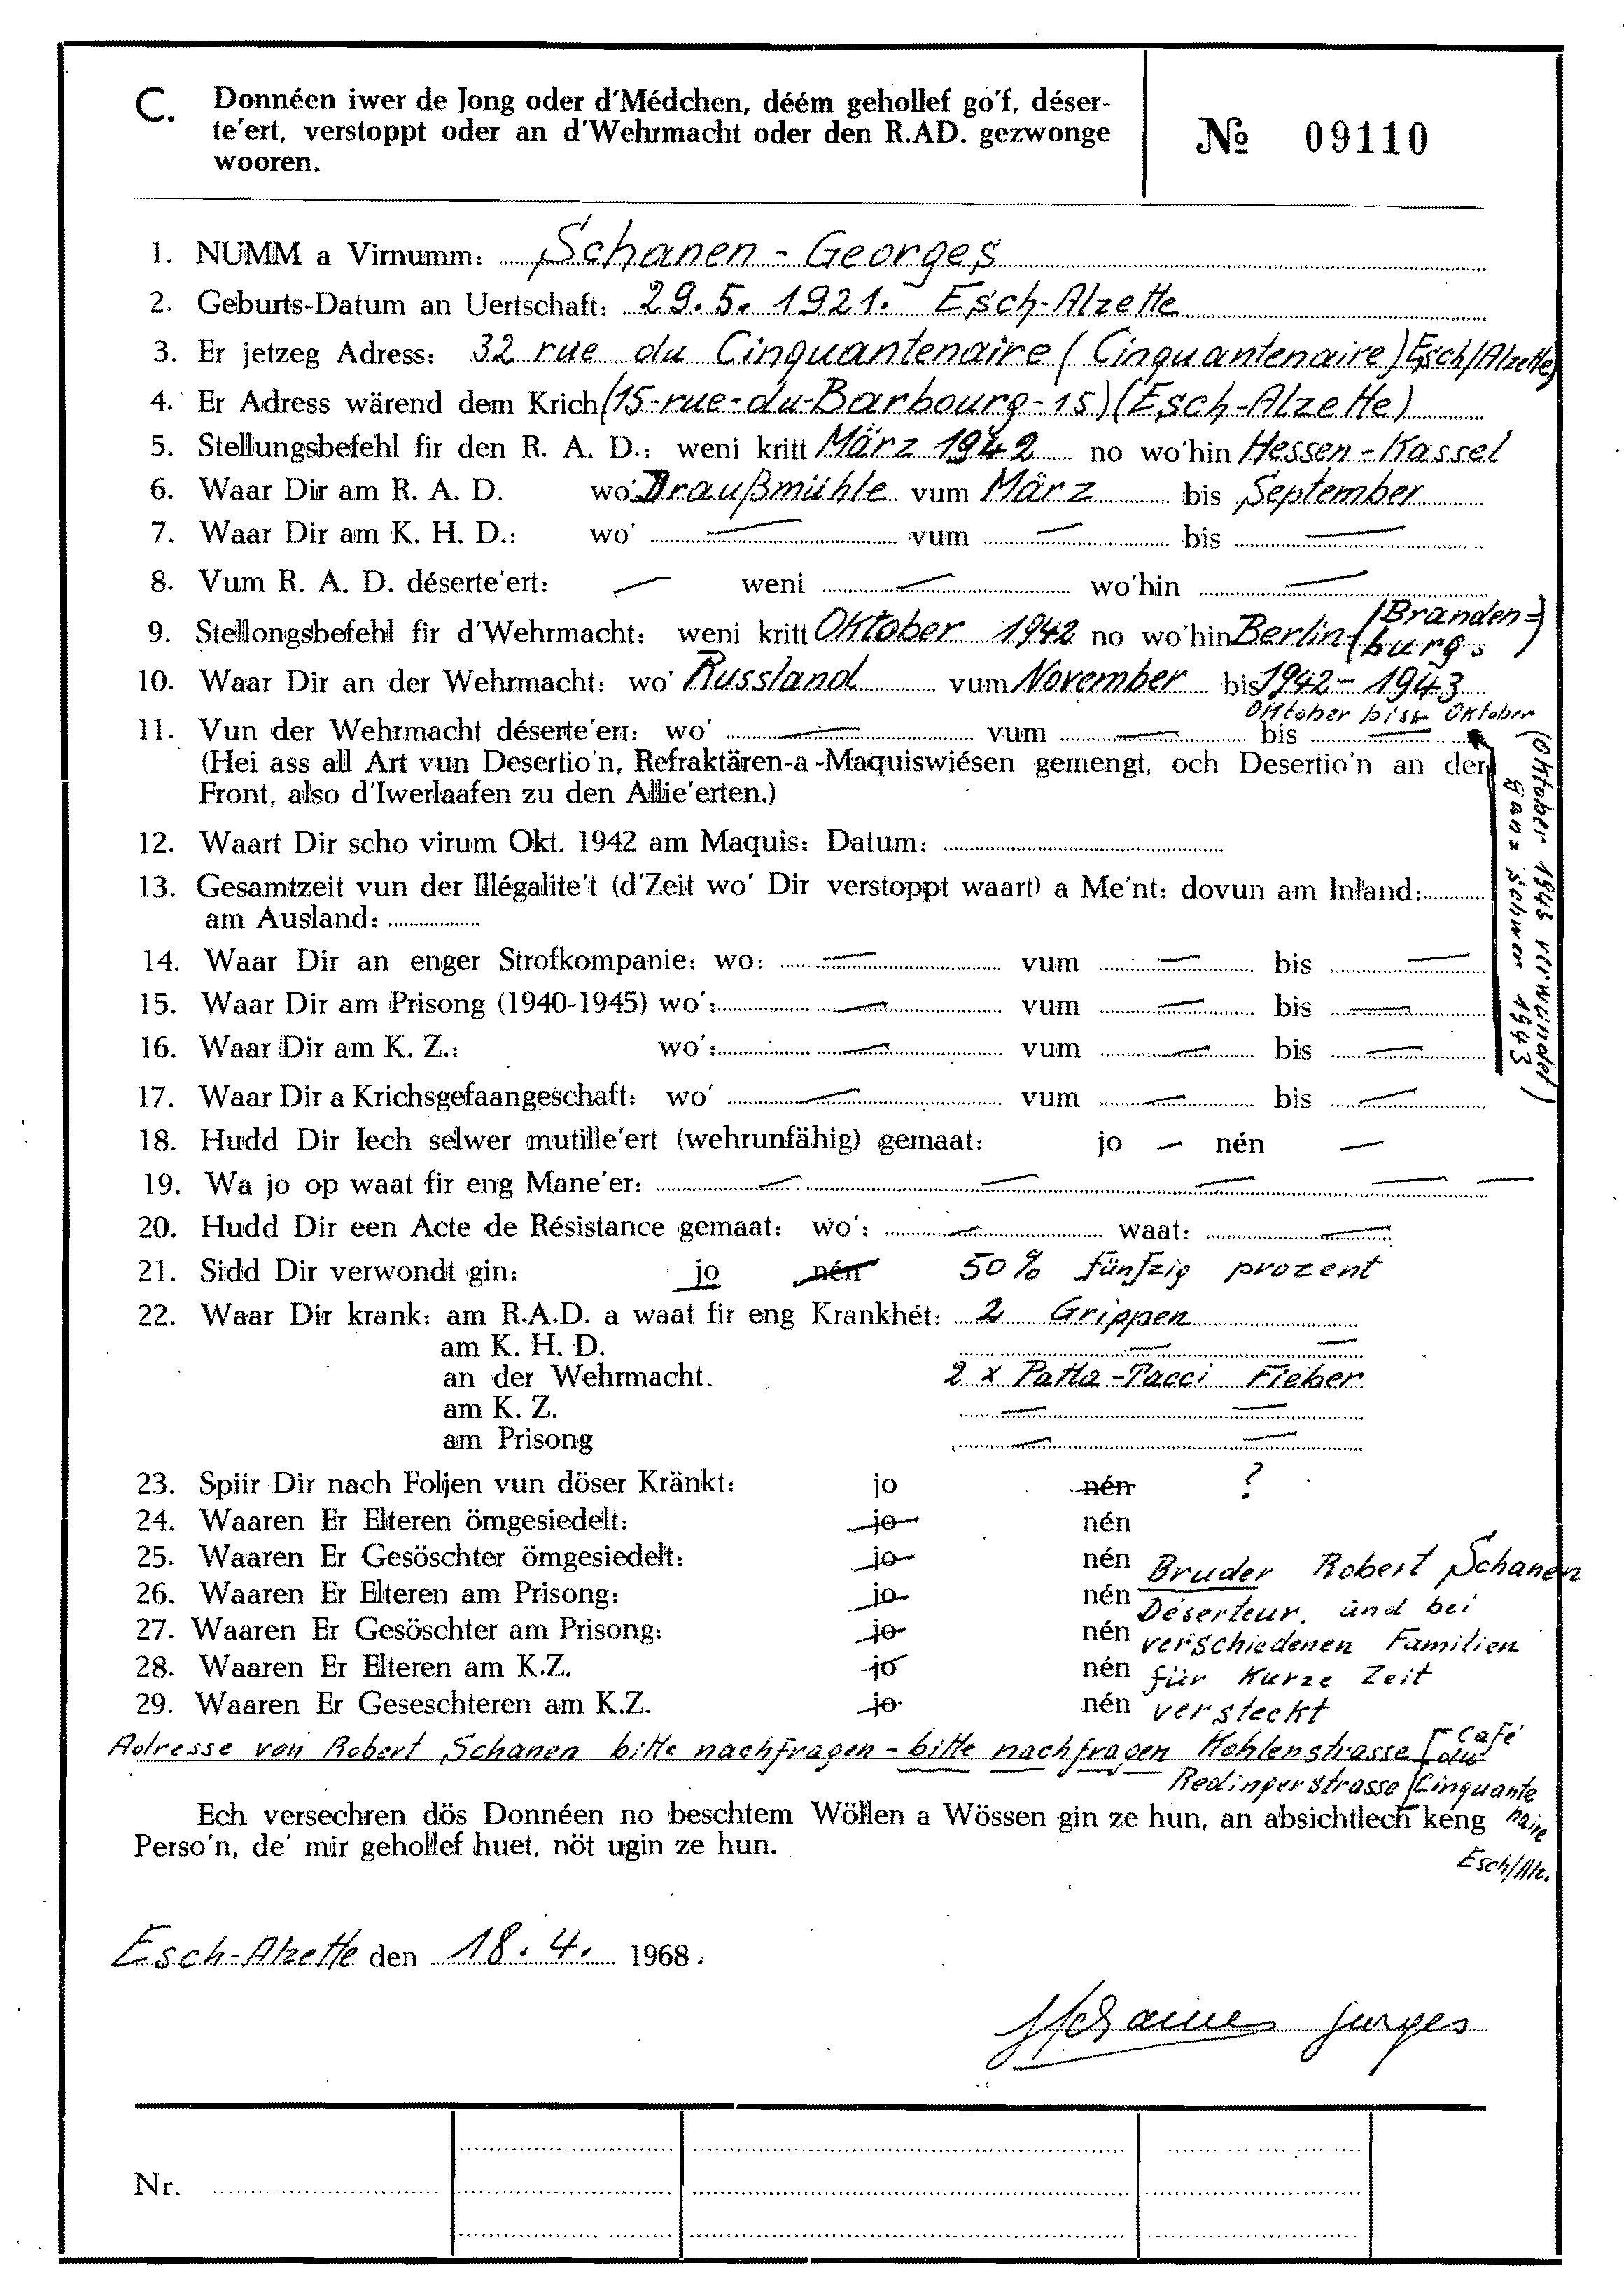 C. Donnéen iwer de Jong oder d'Médchen, déém gehollef go'f, déser-
te'ert, verstoppt oder an d'Wehrmacht oder den R.AD. gezwonge
wooren.
№ 09110
1. NUMM a Virnumm: Schanen - Georges
2. Geburts-Datum an Uertschaft: 29.5.1921. Esch-Alzette
3. Er jetzeg Adress: 32 rue du Cinquantenaire (Cinquantenaire) Esch/Alzette
4. Er Adress wärend dem Krich (15-rue-du-Barbourg-15) (Esch-Alzette)
5. Stellungsbefehl fir den R. A. D.: weni kritt März 1942 no wo'hin Hessen-Kassel
6. Waar Dir am R. A. D. wo' Draußmühle vum März bis September
7. Waar Dir am K. H. D.: wo' — vum — bis —
8. Vum R. A. D. déserte'ert: — weni — wo'hin —
9. Stellongsbefehl fir d'Wehrmacht: weni kritt Oktober 1942 no wo'hin Berlin (Branden=
burg.)
10. Waar Dir an der Wehrmacht: wo' Russland vum November bis 1942 - 1943
Oktober biss Oktober
11. Vun der Wehrmacht déserte'ert: wo' — vum — bis —
(Hei ass all Art vun Desertio'n, Refraktären-a-Maquiswiésen gemengt, och Desertio'n an der
Front, also d'Iwerlaafen zu den Allie'erten.)
(Oktober 1943 verwundet)
ganz schwer 1943
12. Waart Dir scho virum Okt. 1942 am Maquis: Datum:
13. Gesamtzeit vun der Illégalite't (d'Zeit wo' Dir verstoppt waart) a Me'nt: dovun am Inland:
am Ausland:
14. Waar Dir an enger Strofkompanie: wo: — vum — bis —
15. Waar Dir am Prisong (1940-1945) wo': — vum — bis —
16. Waar Dir am K. Z.: wo': — vum — bis —
17. Waar Dir a Krichsgefaangeschaft: wo' — vum — bis —
18. Hudd Dir Iech selwer mutille'ert (wehrunfähig) gemaat: jo — nén —
19. Wa jo op waat fir eng Mane'er: — — — — —
20. Hudd Dir een Acte de Résistance gemaat: wo': — waat: —
21. Sidd Dir verwondt gin: jo nén 50% fünfzig prozent
22. Waar Dir krank: am R.A.D. a waat fir eng Krankhét: 2 Grippen
am K. H. D. — —
an der Wehrmacht. 2 x Patta-Pacci Fieber
am K. Z. — —
am Prisong — —
23. Spiir Dir nach Foljen vun döser Kränkt: jo nén ?
24. Waaren Er Elteren ömgesiedelt: jo nén
25. Waaren Er Gesöschter ömgesiedelt: jo nén Bruder Robert Schanen
26. Waaren Er Elteren am Prisong: jo nén Déserteur. und bei
27. Waaren Er Gesöschter am Prisong: jo nén verschiedenen Familien
28. Waaren Er Elteren am K.Z. jo nén für kurze Zeit
29. Waaren Er Geseschteren am K.Z. jo nén versteckt
Adresse von Robert Schanen bitte nachfragen - bitte nachfragen Kohlenstrasse Café
du
Redingerstrasse Cinquante
naire
Esch/Alz.
Ech versechren dös Donnéen no beschtem Wöllen a Wössen gin ze hun, an absichtlech keng
Perso'n, de' mir gehollef huet, nöt ugin ze hun.
Esch-Alzette den 18.4. 1968.
Schanen Georges
Nr.